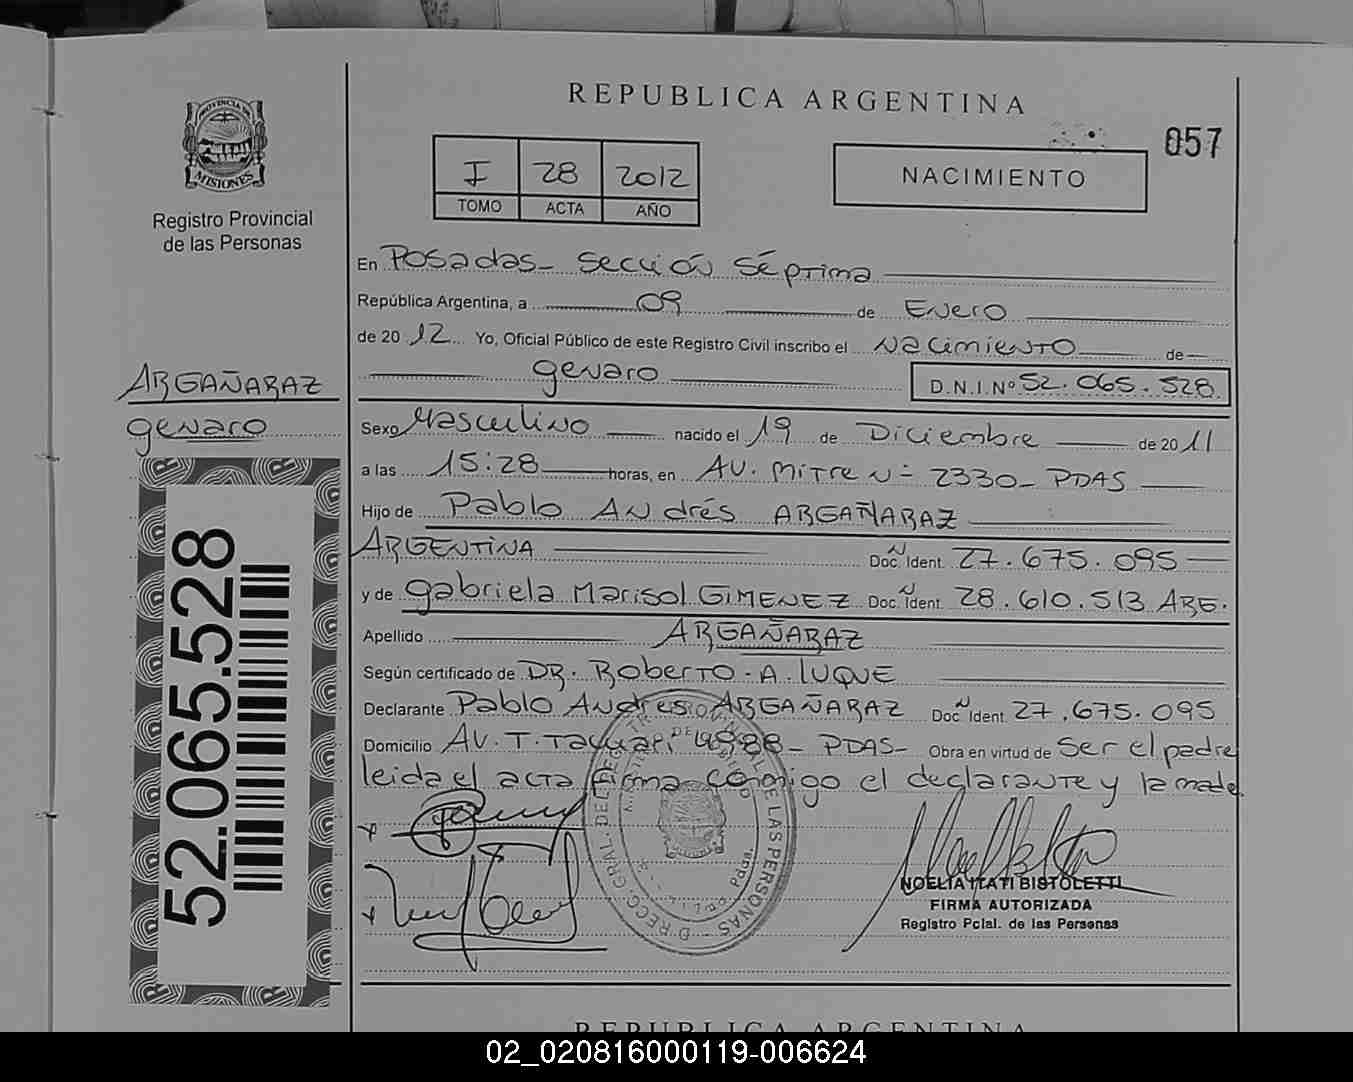 REPUBLICA ARGENTINA
057
PROVINCIA DE
MISIONES
Registro Provincial
de las Personas
I 28 2012
TOMO ACTA AÑO
NACIMIENTO
En Posadas - Sección Séptima
República Argentina, a 09 de Enero
de 2012 Yo, Oficial Público de este Registro Civil inscribo el Nacimiento de
genaro D.N.I. Nº 52.065.528
ARGAÑARAZ
genaro
Sexo Masculino nacido el 19 de Diciembre de 2011
a las 15:28 horas, en AV. Mitre Nº 2330 - PDAS
Hijo de Pablo Andrés ARGAÑARAZ
ARGENTINA Doc. Ident. Nº 27.675.095
y de gabriela Marisol GIMENEZ Doc. Ident. Nº 28.610.513 ARG.
Apellido ARGAÑARAZ
Según certificado de DR. Roberto. A. LUQUE
Declarante Pablo Andres ARGAÑARAZ Doc. Ident. Nº 27.675.095
Domicilio AV. T. Tacuari 4988 - PDAS - Obra en virtud de ser el padre
leida el acta firma conmigo el declarante y la madre
NOELIA ITATI BISTOLETTI
FIRMA AUTORIZADA
Registro Pcial. de las Personas
DE LAS PERSONAS
52.065.528
REPUBLICA ARGENTINA
02_020816000119-006624